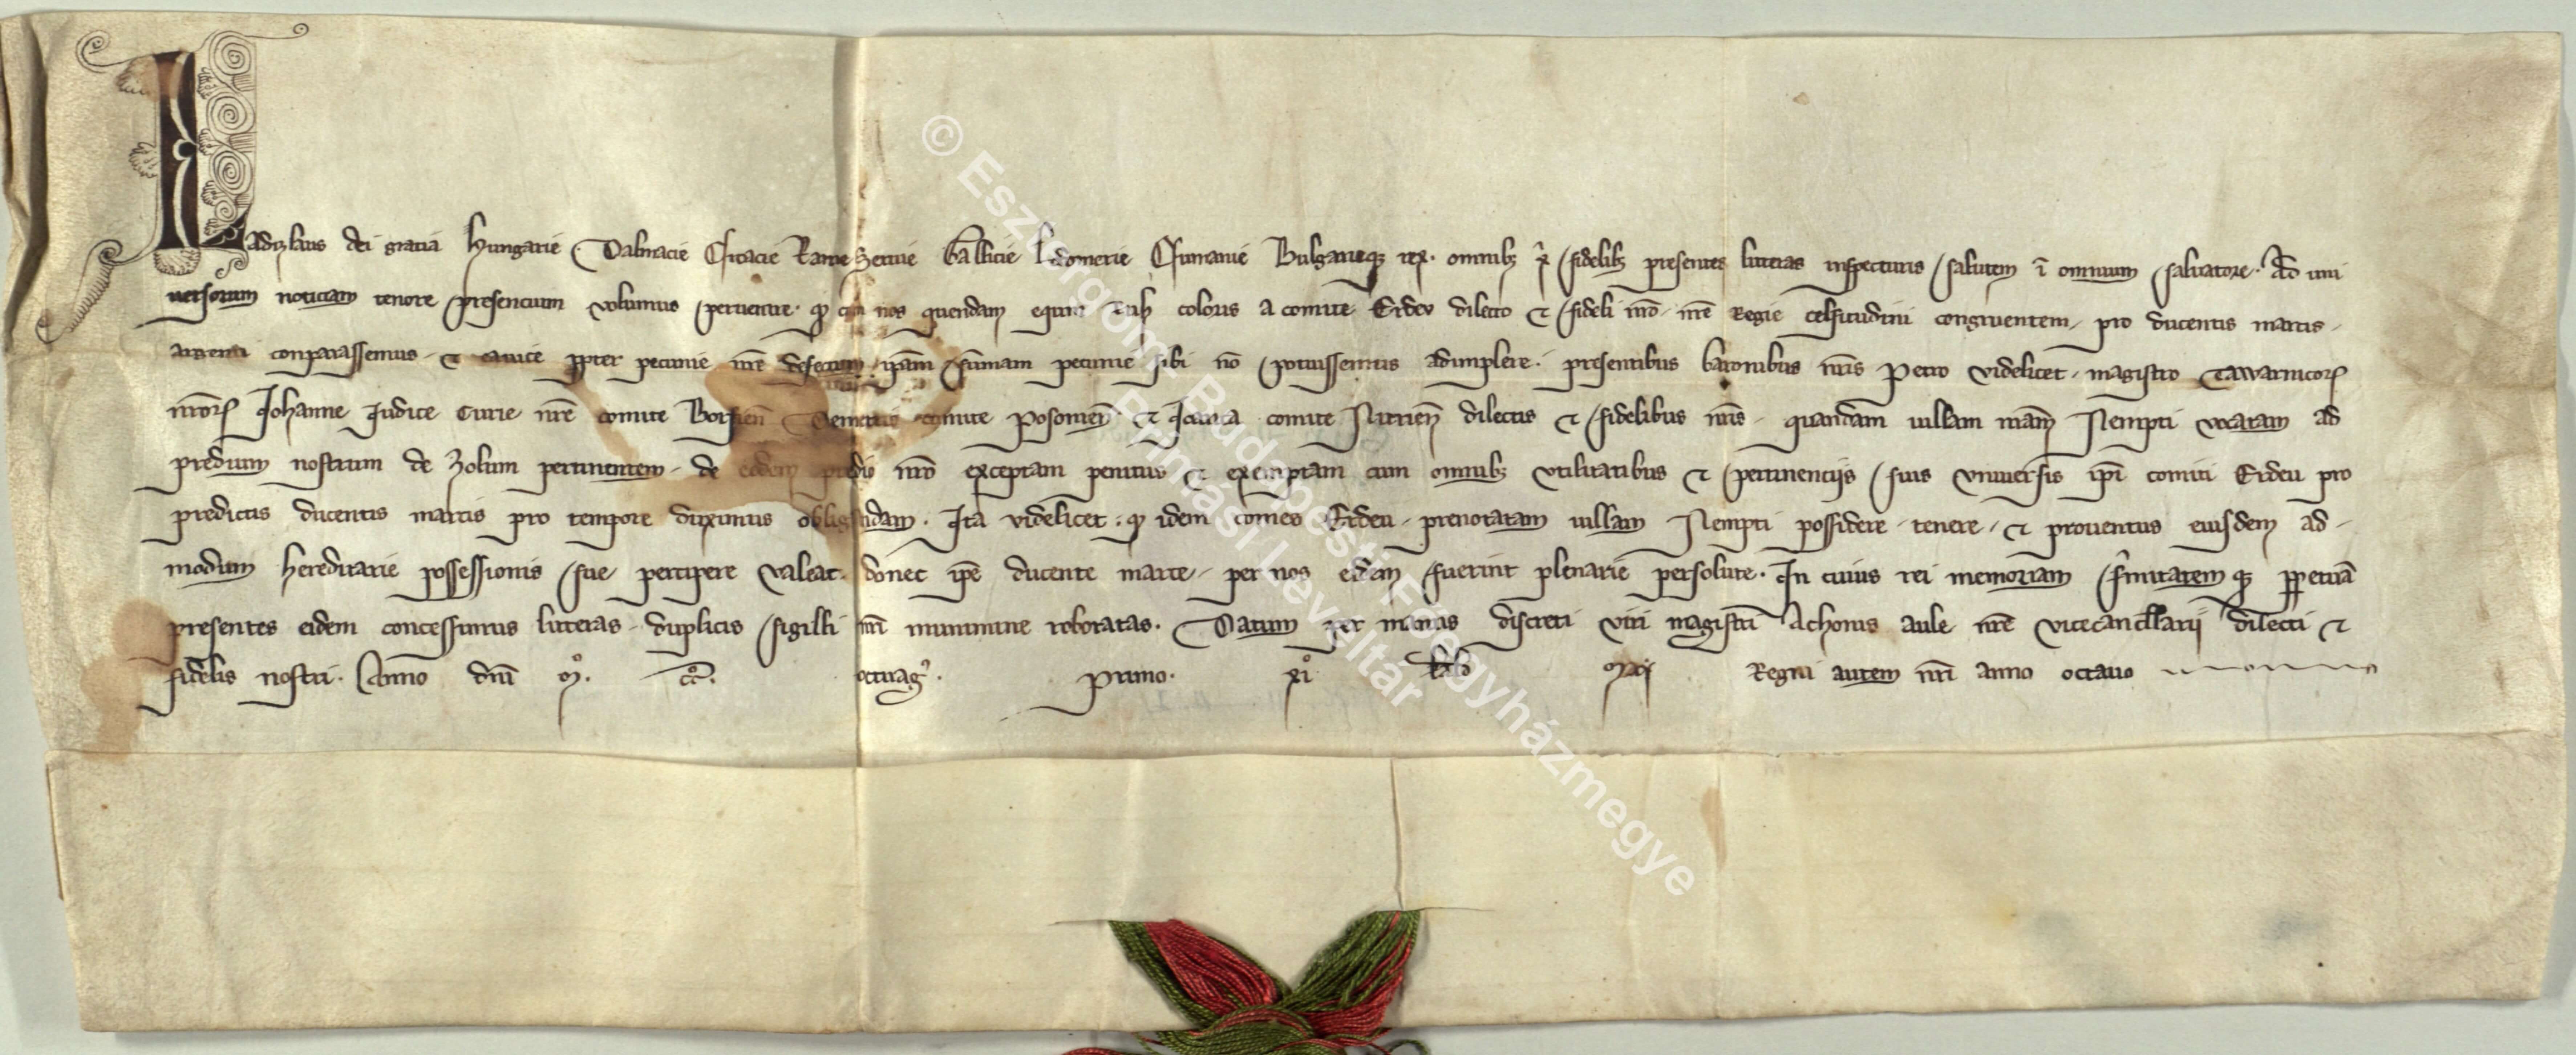 Ladizlaus dei gratia Hungarie Dalmacie Croacie Rame Seruie Gallicie Lodomerie Cumanie Bulgarieq₃ rex. omnib₃ xp̄i fidelib₃ presentes litteras inspecturis salutem ī omnium saluatore. Ad uni
uersorum noticiam tenore presencium volumus peruenire. qđ cū nos quendam equm coloris a comite Erdeu dilecto ⁊ fideli nr̄o nr̄e Regie celsitudini congruentem pro ducentis marcis
argenti conparassemus ⁊ ꝓpter pecunie nr̄e defectum ip̄am sūmam pecunie sibi nō potuissemus adinplere. presentibus baronibus nr̄is Petro videlicet magistro Tawarnicoꝝ
nr̄oꝝ Johanne Judice Curie nr̄e comite Demetrio comite Posonień ⁊ comite Nitrień dilectis ⁊ fidelibus nr̄is quandam uillam nr̄am Nempti vocatam ad
predium nostrum de Zolum pertinentem de eodem predio nr̄o exceptam penitus ⁊ exemptam cum omnib₃ vtilitatibus ⁊ pertinenciis suis vniuersis ip̄i comiti Erdeu pro
predictis ducentis marcis pro tempore duximus obligandam. Ita videlicet. qđ idem comes Erdeu prenotatam uillam Nempti possidere tenere ⁊ prouentus eiusdem ad
modum hereditarie possessionis sue percipere valeat. donec ip̄e ducente marce per nos eidem fuerint plenarie persolute. In cuius rei memoriam fir̄mitatem q₃ ꝑpetuā
presentes eidem concessimus litteras duplicis sigilli nr̄i munimine roboratas. Datum per manus discreti viri magistri Achonis aule nr̄e vicecancellarii dilecti ⁊
fidelis nostri. Anno dn̄i mͦ. ccͦ. octuag̾. primo. xiͦ kald̄ Maij Regni autem nr̄i anno octauo
© Esztergom-Budapesti Főegyházmegye
Prímási Levéltár